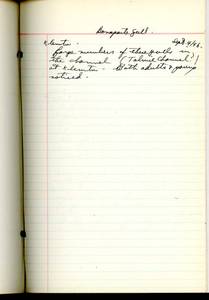 Bonaparte Gull.
Klemtu. Sept 4/36.
Large numbers of these Gulls in
the channel (Tolmie Channel)
at Klemtu. Both adults & young
noticed.